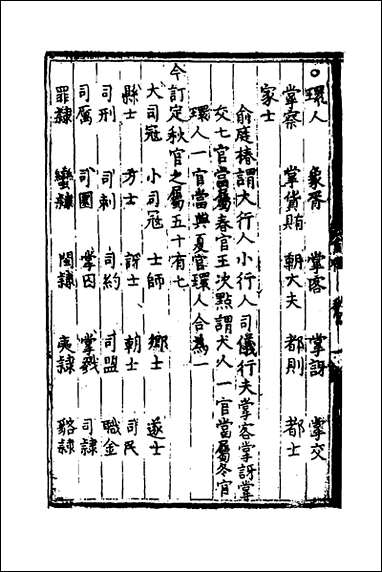 ○環人 象胥 掌客 掌訝 掌交
掌察 掌貨賄 朝大夫 都則 都士
家士
俞庭椿謂大行人小行人司儀行夫掌客掌訝掌
交七官當屬春官王次點謂犬人一官當屬冬官
環人一官當與夏官環人合為一
今訂定秋官之屬五十有七
大司冦 小司冦 士師 鄉士 遂士
縣士 方士 訝士 朝士 司民
司刑 司刺 司約 司盟 職金
司厲 司圜 掌囚 掌戮 司隷
罪隷 蠻隷 閩隷 夷隷 貉隷